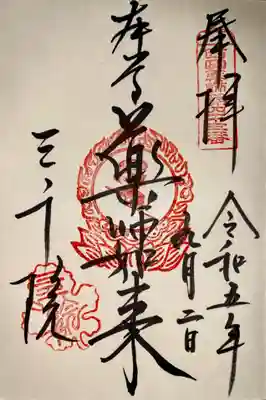 奉拝
令和五年
九月二日
本尊
薬師如来
三千院